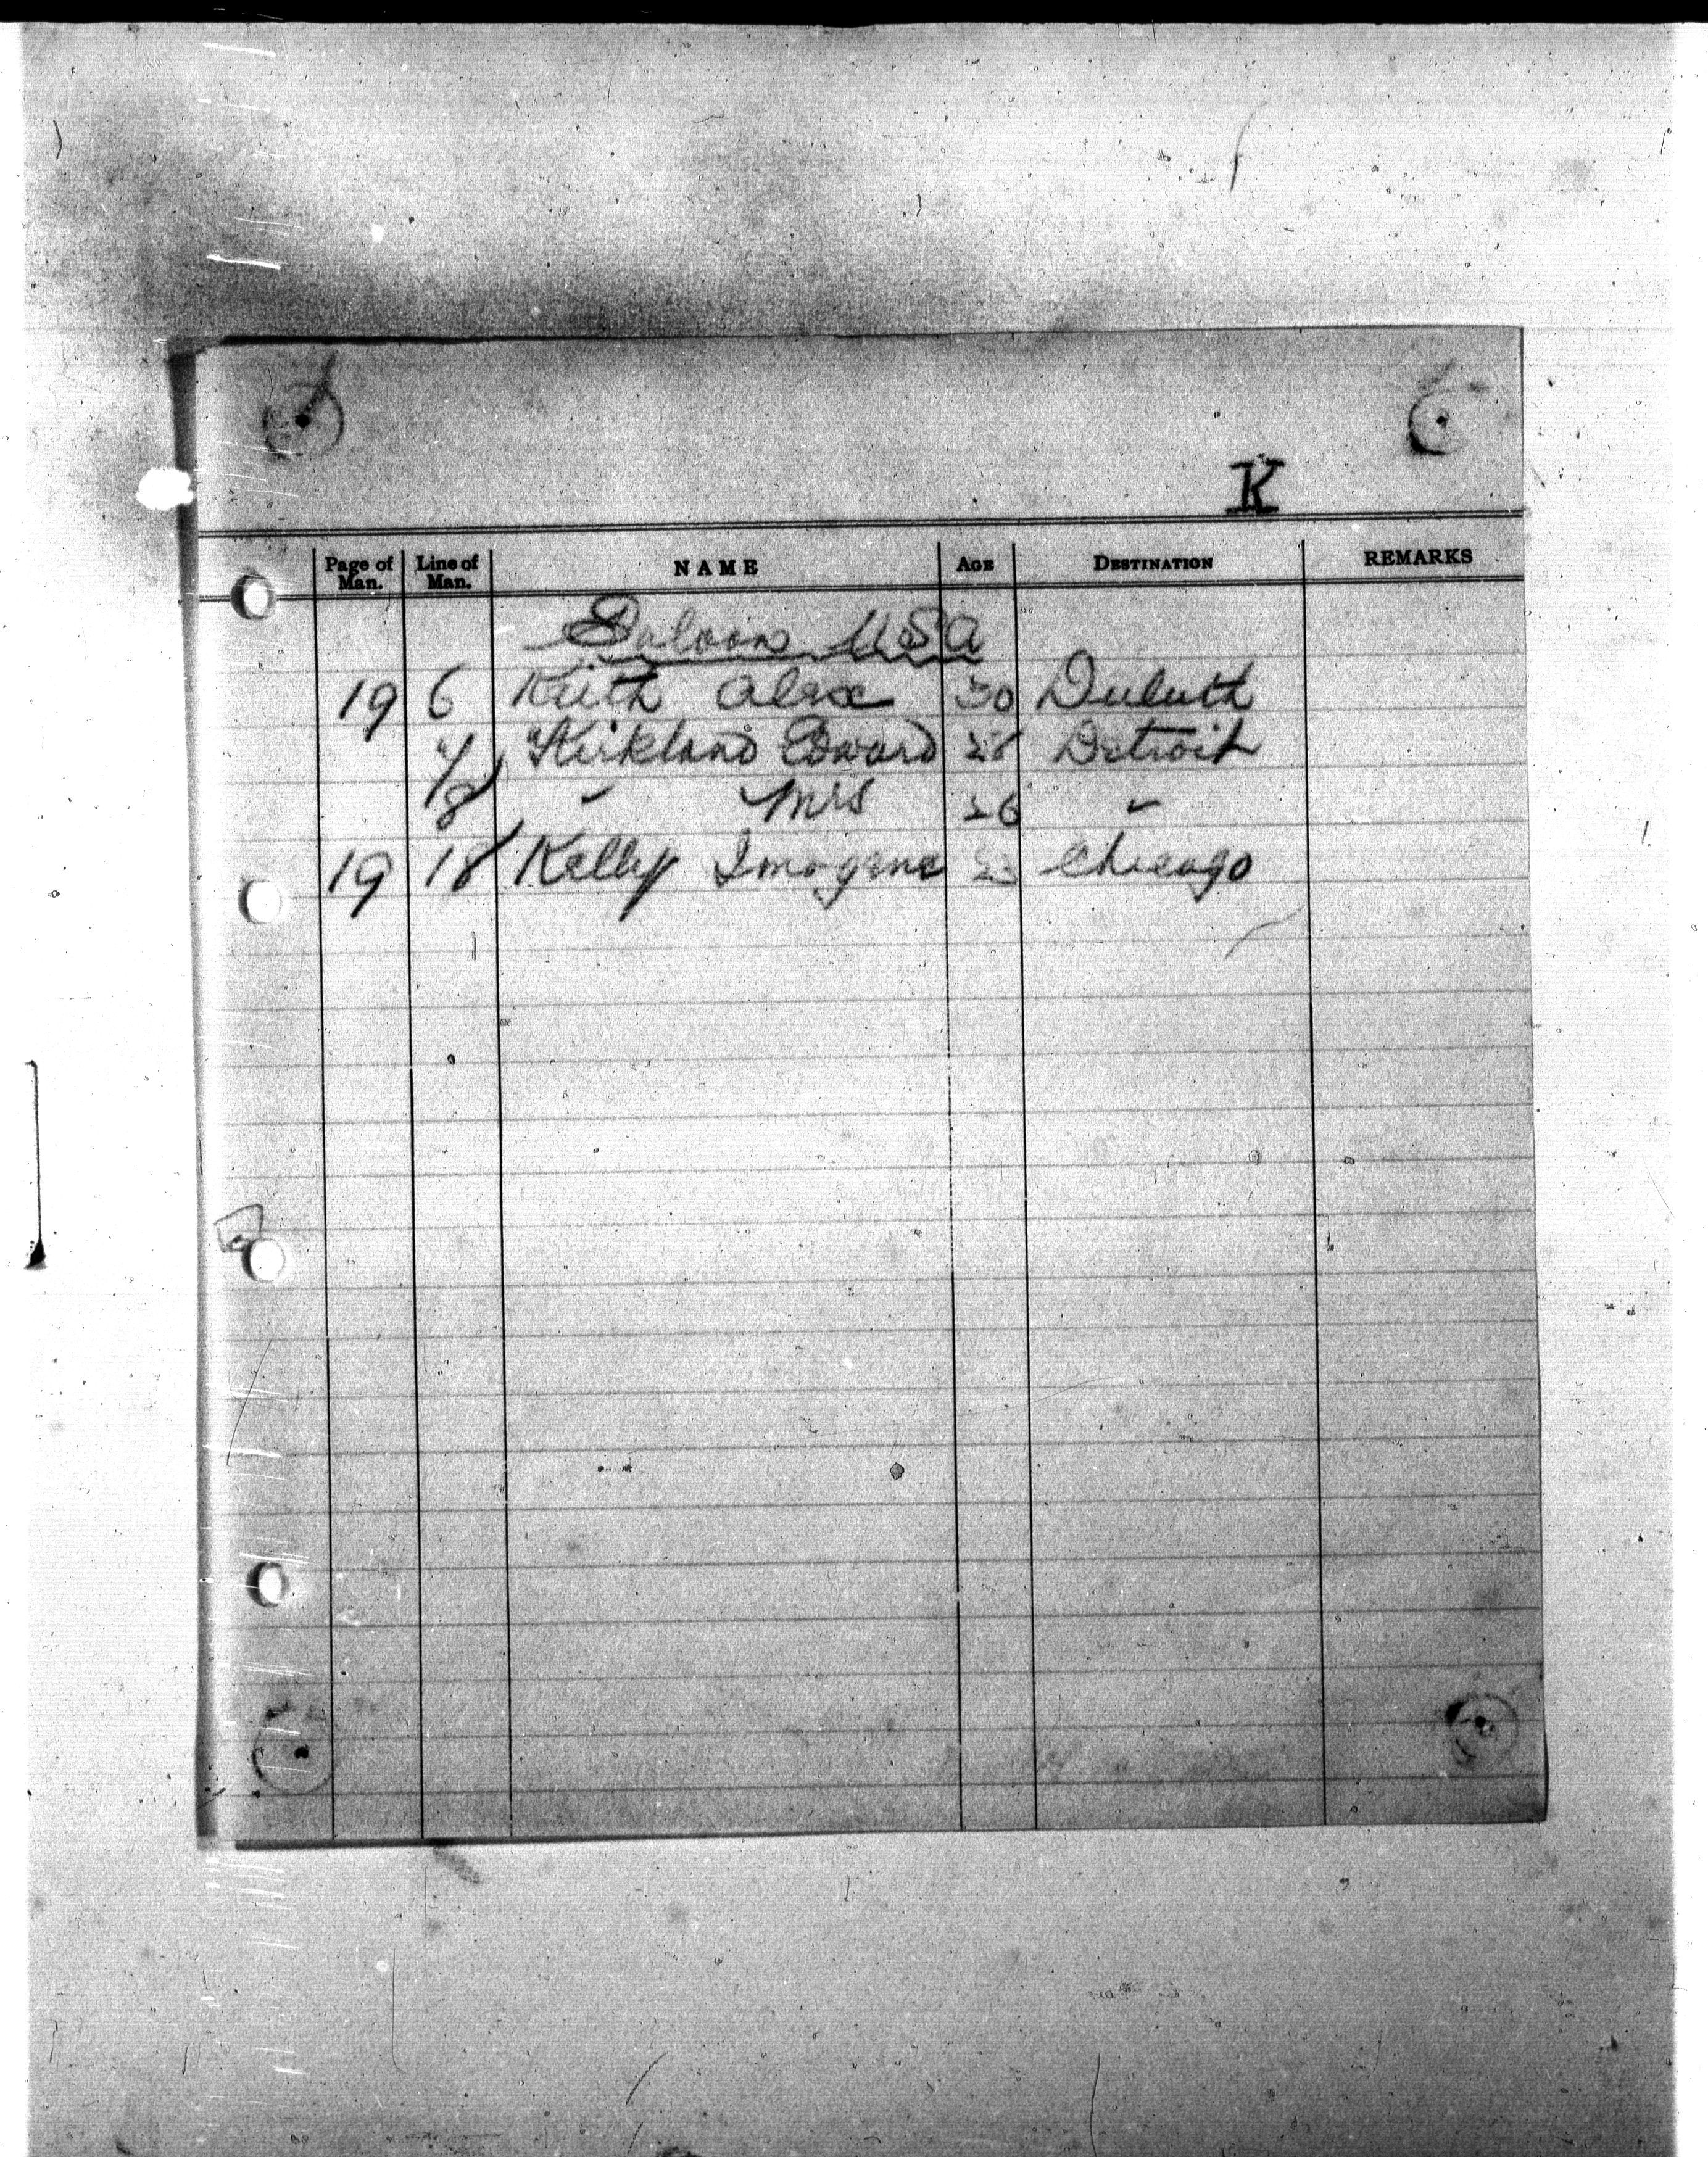 K
Page of Man. Line of Man. NAME AGE DESTINATION REMARKS
Saloon USA
19 6 Keith Alex 30 Duluth
" 7 Kirkland Edward 28 Detroit
8 " Mrs 26 "
19 18 Kelly Imogene Chicago